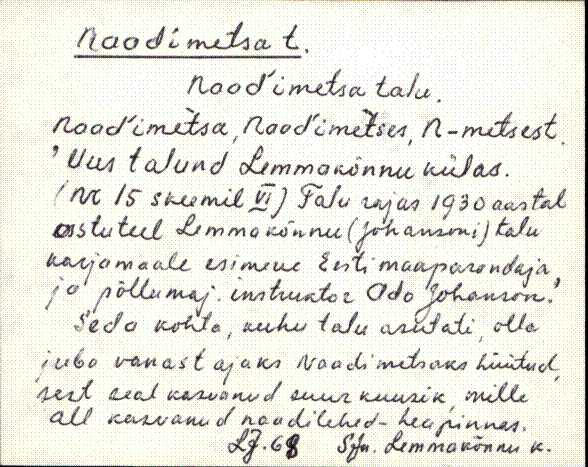 Naadimetsa t.
Naad'imetsa talu.
Naad'imètsa, Naad'imètses, N-metsest.
'Uustalund Lemmakõnnu külas.
(Nr 15 skeemil VI) Talu rajas 1930 aastal
asututeel Lemmakõnnu (Johansoni) talu
karjamaale esimene Eesti maaparandaja
ja põllumaj. instruktor Ado Johanson.'
Seda kohta, kuhu talu asutati, olla
juba vanast ajaks Naadimetsaks hüütud,
sest seal kasvanud suur kuusik, mille
all kasvanud naadilehed - heapinnas.
68 Sja. Lemmakõnnu k.